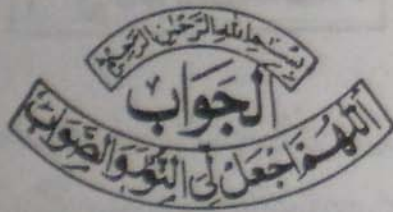 بِسْمِ اللهِ الرَّحْمٰنِ الرَّحِيْمِ
اَلْجَوَابُ
اَللّٰهُمَّ اجْعَلْ لِیَ النُّوْرَ وَالصَّوَابَ